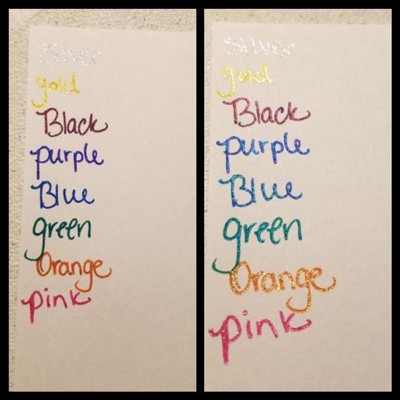 Silver
gold
Black
purple
Blue
green
Orange
pink
Silver
gold
Black
purple
Blue
green
Orange
pink